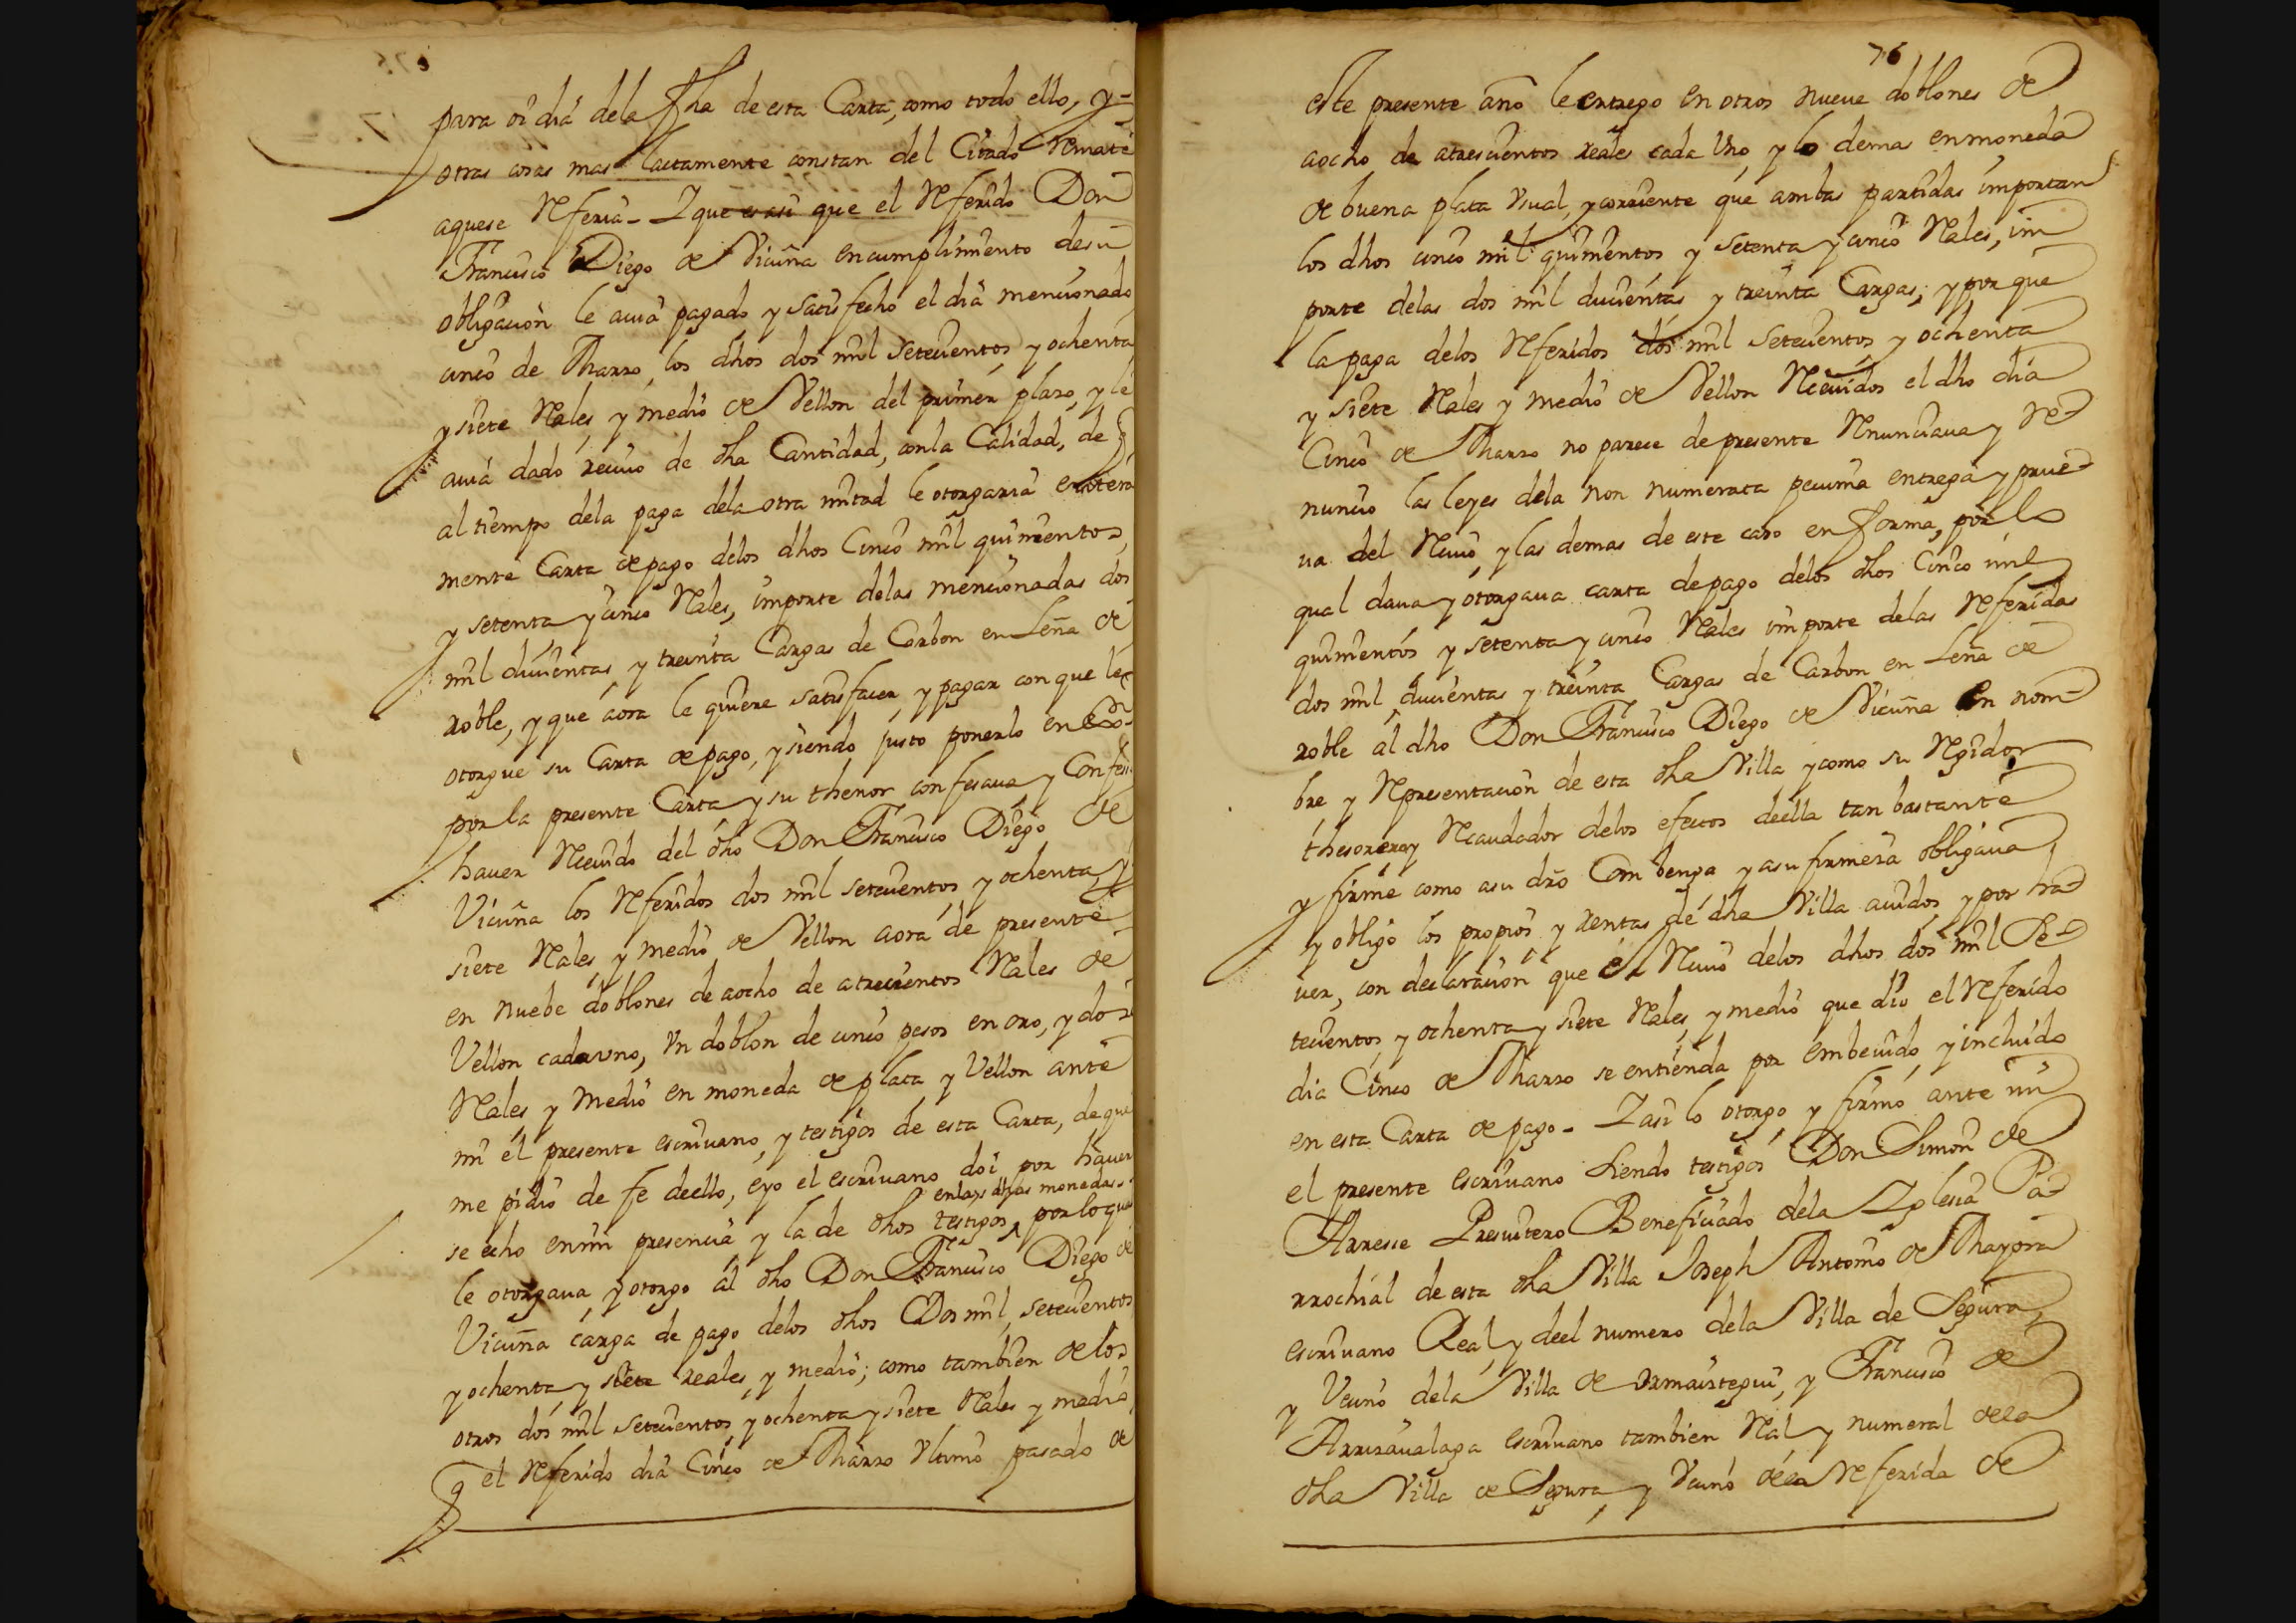 para oi dia dela fha de esta Carta, como todo ello, y
otras cosas mas lactamente constan del Citado Remate
aquese Referia - I que es asi que el Referido Don
Francisco Diego de Vicuña en cumplimiento de su
obligacion le auia pagado y satisfecho el dia mencionado
cinco de Marzo, los dhos dos mil setecientos, y ochenta
y siete Reales, y medio de Vellon del primer plazo, y le
auia dado reciuo de dha Cantidad, con la Calidad, de q
al tiempo dela paga dela otra mitad le otorgaria entera
mente Carta de pago delos dhos Cinco mil quinientos,
y setenta y cinco Reales, importe delas mencionadas dos
mil ducientas, y treinta Cargas de Carbon en Leña de
roble, y que aora le quiere satisfacer, y pagar con que le
otorgue su Carta de pago, y siendo justo ponerlo en
por la presente Carta y su thenor confesaua y Confeso
hauer Receuido del dho Don Francisco Diego de
Vicuña los Referidos dos mil setecientos, y ochenta y
siete Reales, y medio de Vellon aora de presente
en nuebe doblones de aocho de atrecientos Reales de
Vellon cada vno, Vn doblon de cinco pesos en oro, y dos
Reales, y medio en moneda de plata y Vellon ante
mi el presente escriuano, y testigos de esta Carta, de que
me pidio de fe deello, eyo el escriuano doi por hauer
enlas dhas monedas
se echo en mi presencia y la de dhos testigos, por lo que
le otorgaua, y otorgo al dho Don Francisco Diego de
Vicuña carga de pago delos dhos Dos mil, setecientos
y ochenta, y siete reales, y medio; como tambien de los
otros dos mil setecientos, y ochenta y siete Reales y medio
q el Referido dia Cinco de Marzo Vltimo pasado de
76
este presente año le entrego en otros nueue doblones de
aocho de atrescientos reales cada Uno, y lo demas en moneda
de buena plata Usual, y corriente que ambas partidas importan
los dhos cinco mil quinientos y setenta y cinco Reales, im
porte delas dos mil ducientas y treinta Cargas; y por que
la paga delos Referidos dos mil setecientos y ochenta
y siete Reales y medio de Vellon Receuidos el dho dia
Cinco de Marzo no parece de presente Renunciaua y Re
nuncio las leyes dela non numerata pecunia entrega y prue
ua del Reciuo, y las demas de este caso en forma, por lo
qual daua y otorgaua carta de pago delos dhos Cinco mil
quinientos y setenta y cinco Reales importe delas Referidas
dos mil, ducientas y treinta Cargas de Carbon en Leña de
roble al dho Don Francisco Diego de Vicuña en nom
bre y Representacion de esta dha Villa y como su Regidor
thesorero y Recaudador delos efectos deella tan bastante
y firme como asu dro Combenga y asu firmeza obligaua,
y obligo los propios y rentas de dha Villa auidos, y por ha
uer, con declaracion que el Reciuo delos dhos dos mil Se
tecientos, y ochenta y siete Reales, y medio que dio el Referido
dia Cinco de Marzo se entienda por embeuido, y incluido
en esta Carta de pago - I asi lo otorgo, y firmo ante mi
el presente escriuano siendo testigos Don Simon de
Arresse Presuitero Beneficiado dela Iglesia Pa
rrochial de esta dha Villa Joseph Antonio de Mayora
escriuano Real y deel numero dela Villa de Segura,
y Vecino dela Villa de Ormaiztegui, y Francisco de
Arrizaualaga escriuano tambien Real y numeral dela
dha Villa de Segura, y Vecino dela Referida de